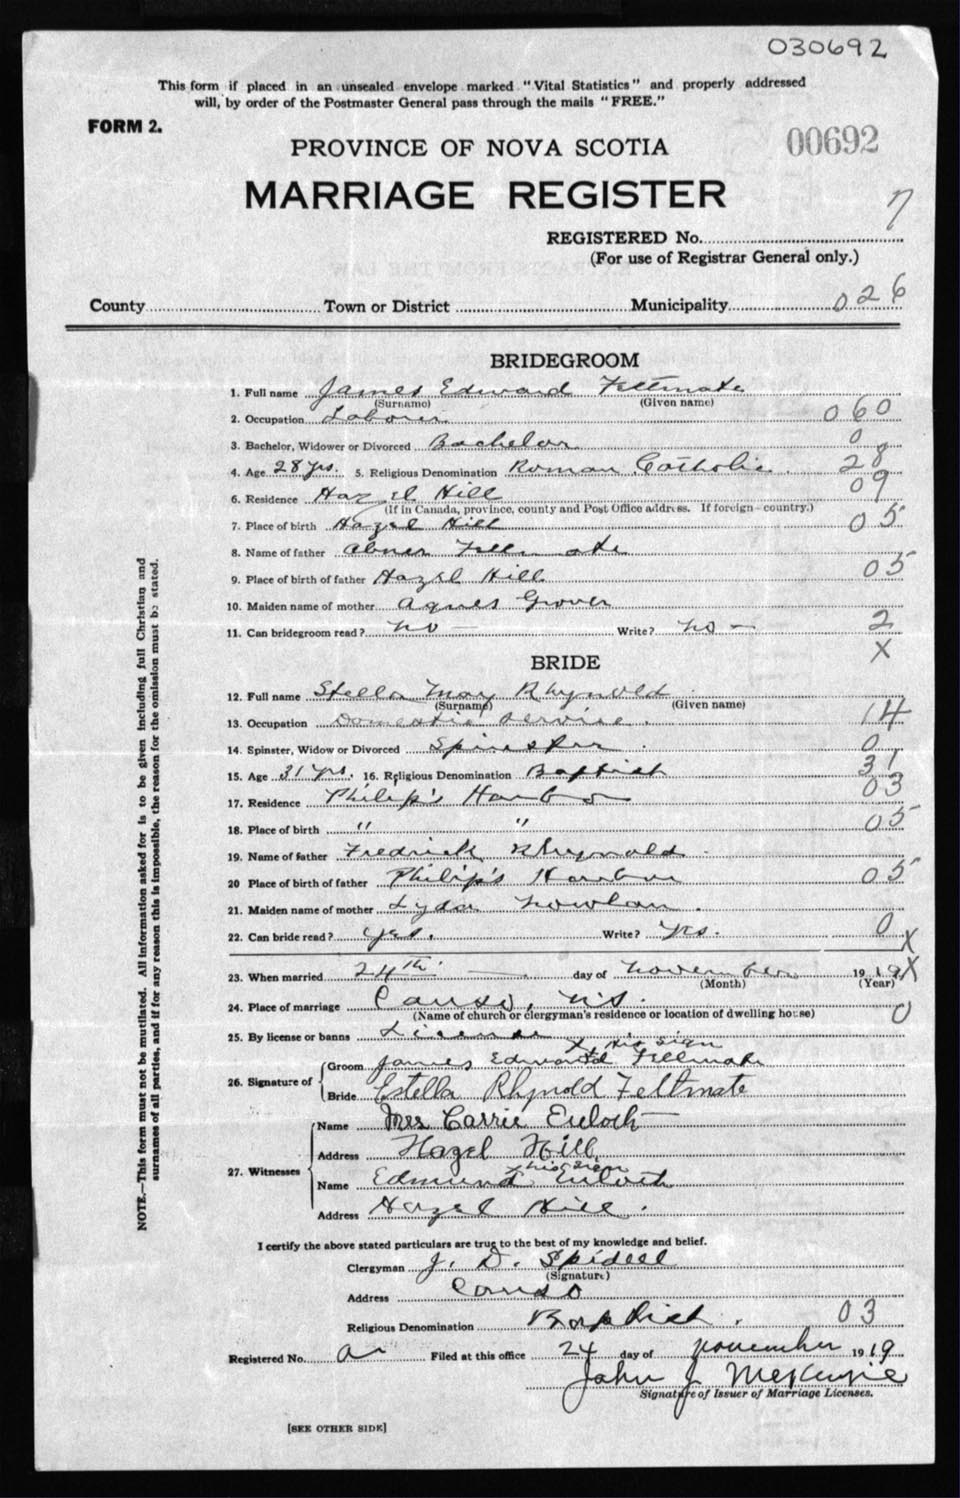 030692
This form if placed in an unsealed envelope marked "Vital Statistics" and properly addressed
will, by order of the Postmaster General pass through the mails "FREE."
FORM 2.
PROVINCE OF NOVA SCOTIA
00692
MARRIAGE REGISTER
7
REGISTERED No.
(For use of Registrar General only.)
County Town or District Municipality 026
BRIDEGROOM
1. Full name James Edward Feltmate
(Surname) (Given name)
2. Occupation Laborer 060
3. Bachelor, Widower or Divorced Bachelor 0
4. Age 28 yrs. 5. Religious Denomination Roman Catholic. 28
6. Residence Hazel Hill 09
(If in Canada, province, county and Post Office address. If foreign-country.)
7. Place of birth Hazel Hill 05
8. Name of father Abner Feltmate
9. Place of birth of father Hazel Hill 05
10. Maiden name of mother Agnes Grover
11. Can bridegroom read? no — Write? no — 2
X
BRIDE
12. Full name Stella May Rhynold
(Surname) (Given name)
13. Occupation Domestic service. 14
14. Spinster, Widow or Divorced Spinster. 0
15. Age 31 yrs. 16. Religious Denomination Baptist 31
17. Residence Philip's Harbor 03
18. Place of birth " " 05
19. Name of father Fredrick Rhynold
20 Place of birth of father Philip's Harbor 05
21. Maiden name of mother Lyda Nowlan.
22. Can bride read? yes. Write? yes. 0 X
23. When married 24th — day of November 1919 X
(Month) (Year)
24. Place of marriage Canso, N.S. 0
(Name of church or clergyman's residence or location of dwelling house)
25. By license or banns License
X his sign
26. Signature of Groom James Edward Feltmate
Bride Estella Rhynold Feltmate
27. Witnesses Name Mrs Carrie Euloth
Address Hazel Hill
X his sign
Name Edmund Euloth
Address Hazel Hill.
I certify the above stated particulars are true to the best of my knowledge and belief.
Clergyman J. D. Spidell
(Signature)
Address Canso
Religious Denomination Baptist. 03
Registered No. Filed at this office 24 day of November 1919
John J McKenzie
Signature of Issuer of Marriage Licenses.
[SEE OTHER SIDE]
NOTE.—This form must not be mutilated. All information asked for is to be given including full Christian and
surnames of all parties, and if for any reason this is impossible, the reason for the omission must be stated.